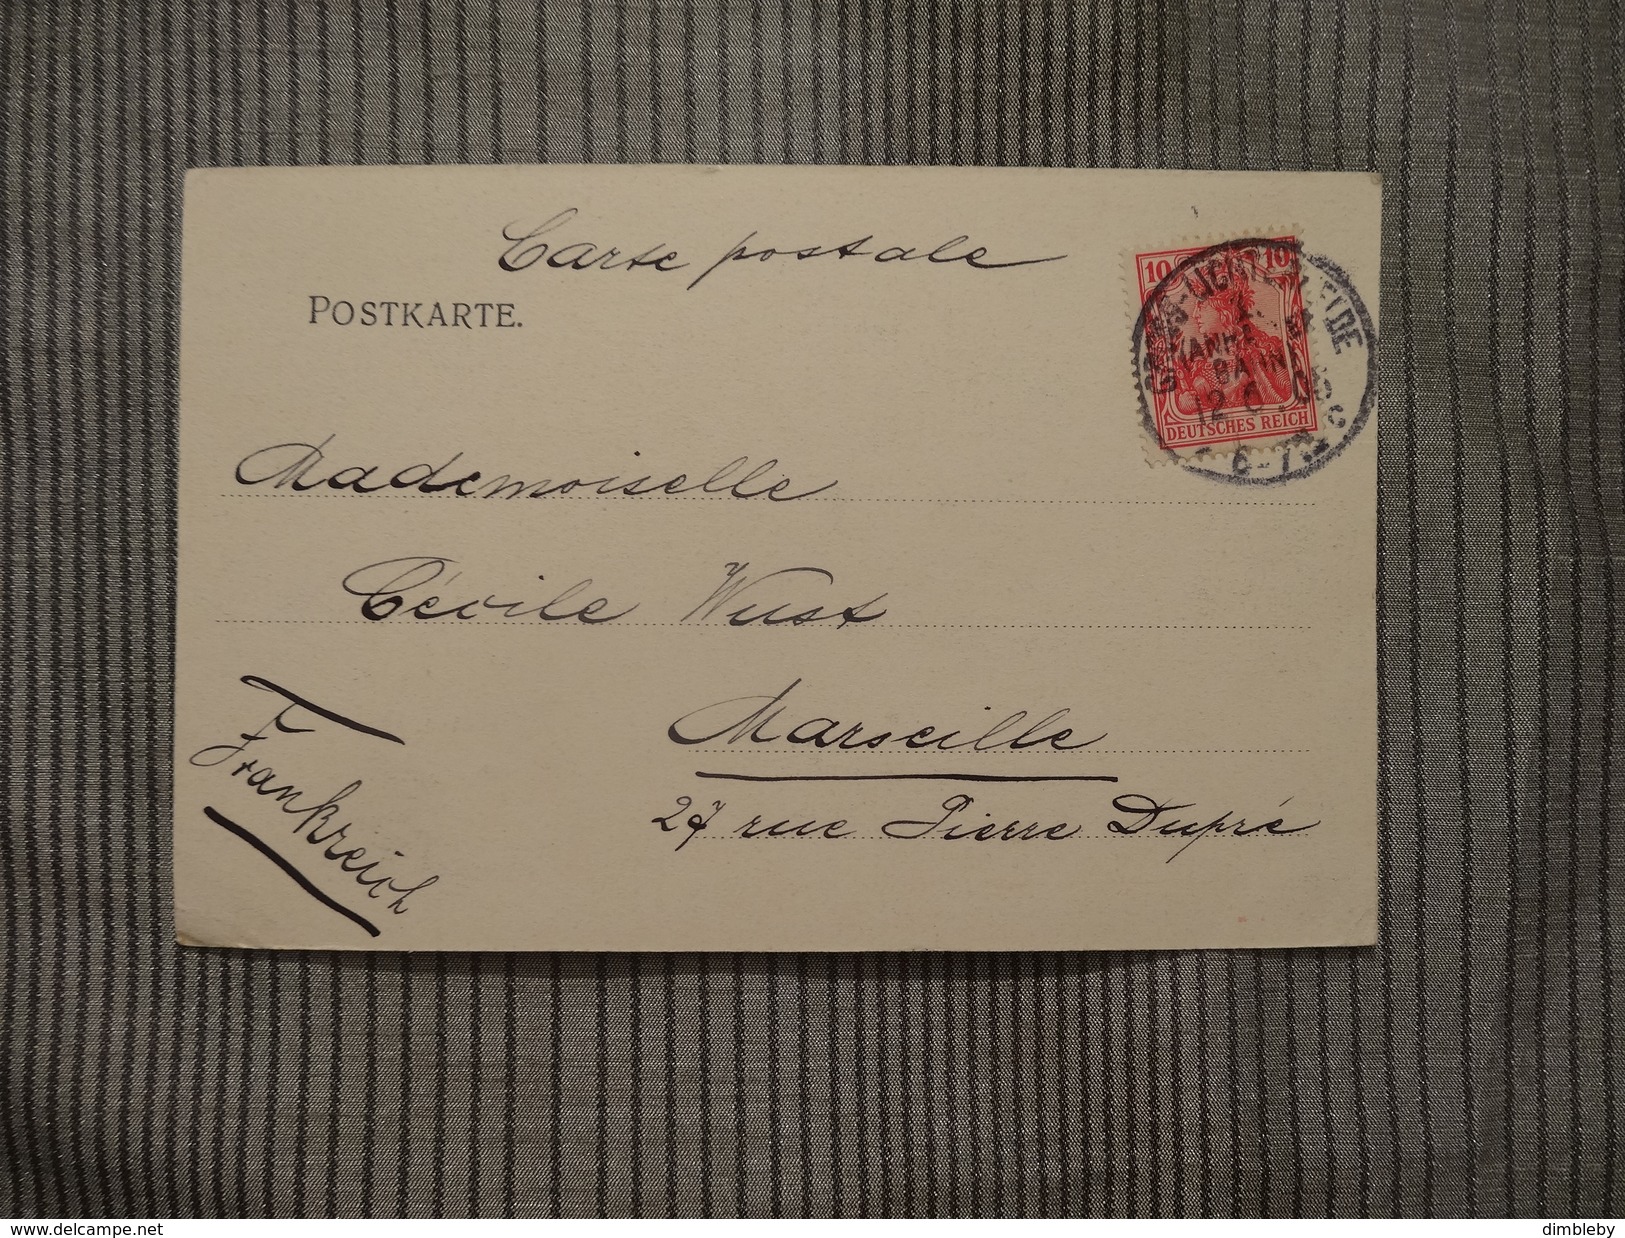 Carte postale
POSTKARTE.
10 10
DEUTSCHES REICH
BAHN
12 6
6-7
Mademoiselle
Cécile Wust
Marseille
27 rue Pierre Dupré
Frankreich
www.delcampe.net
dimbleby